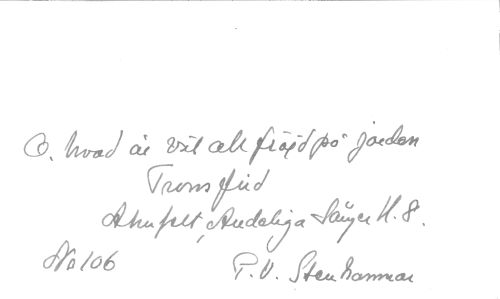 O, hvad är väl all fröjd på jorden
Trons frid
Ahnfelt, Andeliga Sånger H. 8.
No 106
P. U. Stenhammar